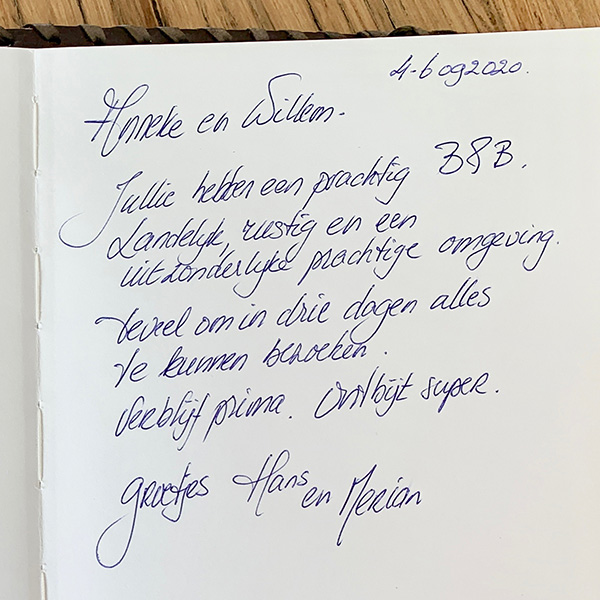 4-6 09 2020.
Anneke en Willem.
Jullie hebben een prachtig B&B.
Landelijk, rustig en een
uitzonderlijke prachtige omgeving.
Teveel om in drie dagen alles
te kunnen bezoeken.
Verblijf prima. Ontbijt super.
groetjes Hans
en Merian